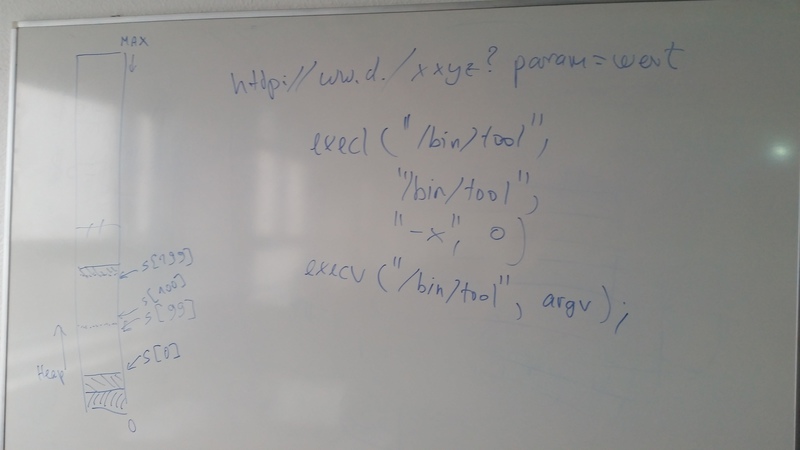 MAX
http://ww.d./xxyz? param=wert
execl ("/bin/tool",
"/bin/tool",
"-x", 0)
execv ("/bin/tool", argv);
s[199]
s[100]
s[99]
s[0]
Heap
0